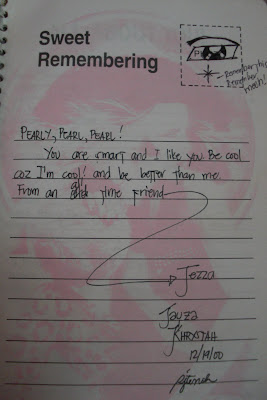 Sweet
Remembering
Remember this
Remember
meh!
PEARLY, PEARL, PEARL!
You are smart and I like you. Be cool
coz I'm cool! and be better than me.
From an old time friend
Jezza
Jayza
KHRXSTJAH
12/19/00